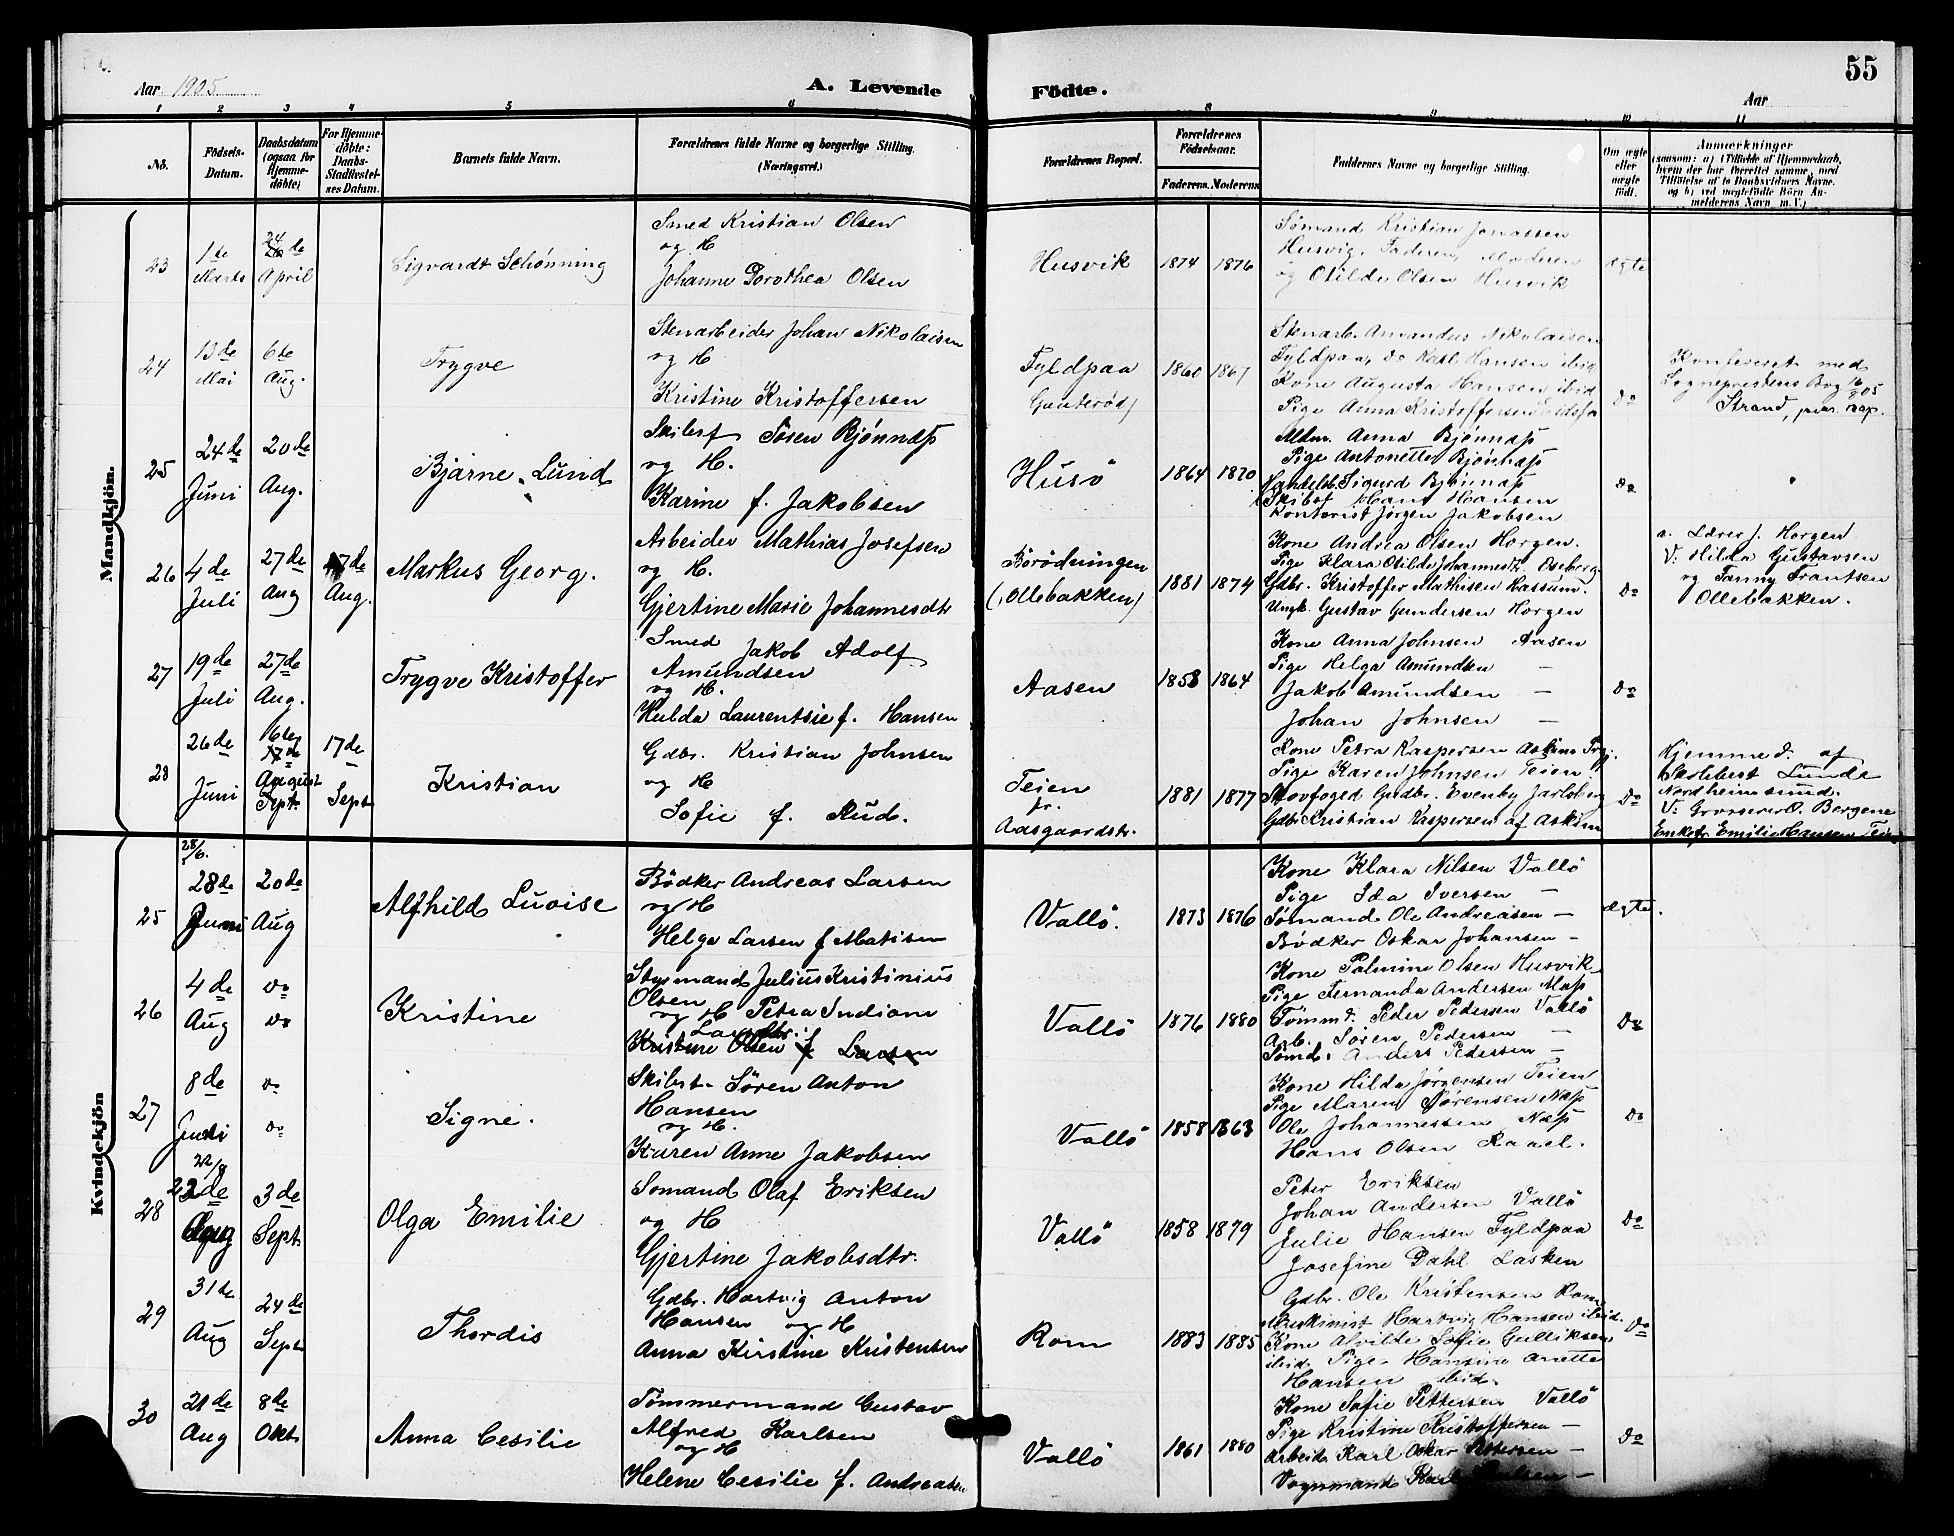 55
Aar 1905
A. Levende Födte.
Aar
1 2 3 4 5 6 8 9 10 11
No.
Födsels-Datum.
Daabsdatum (ogsaa for Hjemme-döbte)
For Hjemme-döbte: Daabs-Stadfæstel-ses Datum.
Barnets fulde Navn.
Forældrenes fulde Navne og borgerlige Stilling. (Næringsvei.)
Forældrenes Bopæl.
Forældrenes Födselsaar.
Faderens. Moderens.
Faddernes Navne og borgerlige Stilling.
Om ægte eller uægte født.
Anmærkninger
(saasom: a) i Tilfælde af Hjemmedaab,
hvem der har forrettet samme, med
Tilföielse af to Daabsvidners Navne.
og b) ved uægtefödte Börn An-
melderens Navn, m. V.)
Mandkjön.
23
1de Marts
24de April
Sigvardt Schønning
Smed Kristian Olsen
og H
Johanne Dorothea Olsen
Husvik
1874 1876
Sømand Kristian Jonassen
Husvig, Faderen, Moderen
og Otilde Olsen Husvik
ægte
24
13de Mai
6te Aug.
Trygve
Stenarbeider Johan Nikolaisen
og H
Kristine Kristoffersen
Fyldpaa
Gunderød)
1860 1867
Stenarb. Amandus Nikolaisen
Fyldpaa, do Karl Hansen ibid
Kone Augusta Hansen ibid
Pige Anna Kristoffersen
do
Konfereret med
Sogneprestens Bog 16/8 05
Strand, pers. cap.
25
24de Juni
20de Aug.
Bjarne Lund
Skibsf Søsen Bjønnæss
og H.
Karine f. Jakobsen
Husö
1864 1870
Mdm. Anna Bjönnæss
Pige Antonette Bjönnæss
Handelsb. Sigurd Bjönnæss
Skibsf Hans Hansen
Kontorist Jørgen Jakobsen
do
26
4de Juli
27de Aug
17de Aug.
Markus Georg.
Arbeider Mathias Josefsen
og H.
Gjertine Marie Johannesdtr
Börödningen
(Ollebakken)
1881 1874
Kone Andrea Olsen Horgen.
Pige Klara Otilde Johannesdtr. Oseberg
Gdbr. Kristoffer Mathisen Rassum.
Ungk. Gustav Gundersen Horgen
do
a. Lærer J. Horgen
V: Hilda Gustavsen
og Fanny Frantsen
Ollebakken.
27
19de Juli
27de Aug.
Trygve Kristoffer
Smed Jakob Adolf
Amundsen
og H.
Hulda Laurentsie f. Hansen
Aasen
1858 1864
Kone Anna Johnsen Aasen
Pige Helga Amundsen —
Jakob Amundsen —
Johan Johnsen —
do
28
26de Juni
16de 17de August Sept.
17de Sept
Kristian
Gdbr. Kristian Johnsen
og H
Sofie f. Rud.
Teien
pr. Aasgaardstr.
1881 1877
Kone Petra Kaspersen Askim
Pige Karen Johnsen Teien
Skovfoged Gudbr. Evenby Jarlsberg
Gdbr. Kristian Kaspersen af Askim
do
Hjemmed. af
Lunde
Nordheimsund.
V: Grosserer O. Bergene
Enkefr. Emilie Hansen Teien
Kvindekjön
25
28/6.
28de Juni
20de Aug
Alfhild Luoise
Bödker Andreas Larsen
og H
Helga Larsen f Matisen
Vallö.
1873 1876
Kone Klara Nilsen Vallö
Pige Ida Iversen —
Sømand Ole Andreasen —
Bödker Oskar Johansen —
ægte.
26
4de Aug
do do
Kristine
Styrmand Julius Kristinius
Olsen
og H Petra Indiane
Larsdtr.
Kristine Olsen f Larsen
Vallö
1876 1880
Kone Palmine Olsen Husvik
Pige Fernanda Andersen Næss
Tømmd. Peder Pedersen Vallö
Arb. Søren Pedersen —
Sømd. Anders Pedersen —
do
27
8de Juni
do do
Signe.
Skibst. Søren Anton
Hansen
og H.
Karen Anne Jakobsen
Vallö
1858 1863
Kone Hilda Jørgensen Teien
Pige Maren Sørensen Næss
Ole Johannessen Næss
Hans Olsen Raael.
do
28
22de Aug
3de Sept.
Olga Emilie
Sømand Olaf Eriksen
og H
Gjertine Jakobsdtr.
Vallö
1858 1879
Peter Eriksen
Johan Andersen Vallö
Julie Hansen Fyldpaa
Josefine Dahl Lasken
do
29
31de Aug
24de Sept
Thordis
Gdbr. Hartvig Anton
Hansen og H
Anna Kirstine Kristensen
Rom
1883 1885
Gdbr. Ole Kristensen Rom
Maskinist Hartvig Hansen ibid.
Kone Alvilde Sofie Gulliksen
ibid. Pige Hansine Anette
Hansen ibid.
do
30
21de Aug
8de Okt.
Anna Cesilie
Tømmermand Gustav
Alfred Karlsen
og H
Helene Cesilie f. Andreasen
Vallö
1861 1880
Kone Sofie Pettersen Vallö
Pige Kristine Kristoffersen —
Arbeid. Karl Oskar Pettersen —
Vognmand Karl —
do